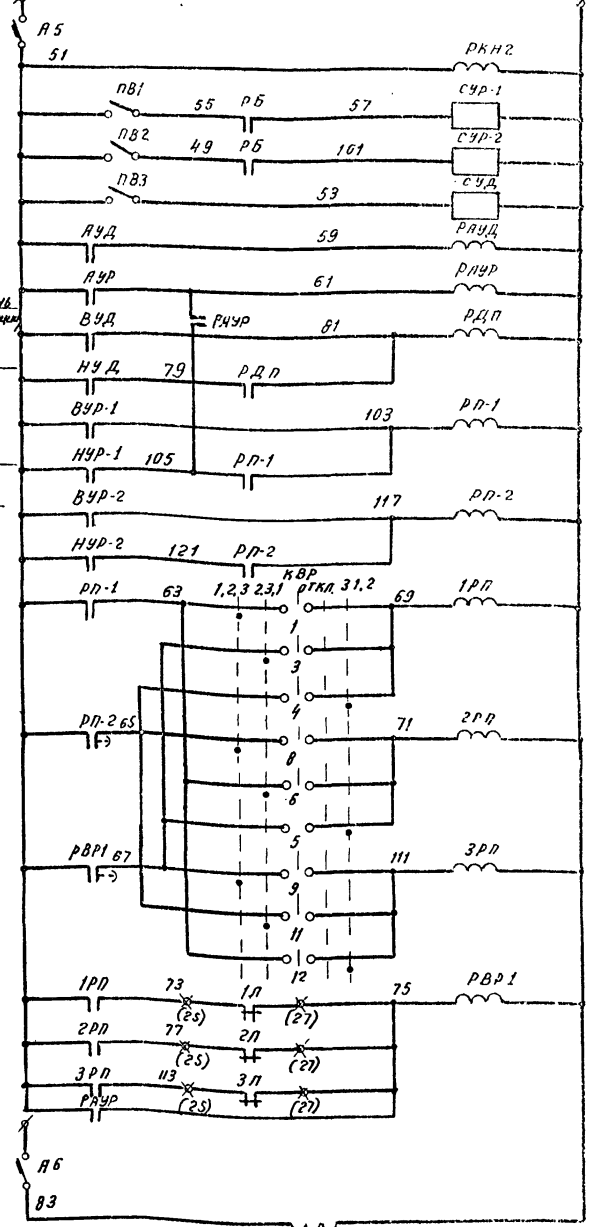 А5
51 РКН2
ПВ1 55 РБ 57 СУР-1
ПВ2 49 РБ 101 СУР-2
ПВ3 53 СУД
АУД 59 РАУД
АУР 61 РАУР
РАУР
ВУД 81 РДП
НУД 79 РДП
ВУР-1 103 РП-1
НУР-1 105 РП-1
ВУР-2 117 РП-2
НУР-2 121 РП-2
КВР
РП-1 63 1,2,3 2,3,1 0 ТКЛ 3,1,2 69 1РП
1
3
4
РП-2 65 71 2РП
8
6
5
РВР1 67 111 3РП
9
11
12
1РП 73 1П 75 РВР1
(25) (27)
2РП 77 2П
(25) (27)
3РП 113 3П
РАУР (25) (27)
А6
83